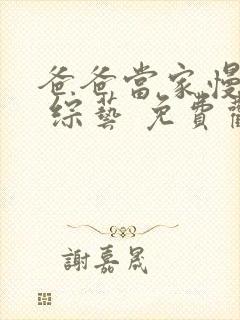 爸爸當家.慢
综藝 免費
謝嘉晟